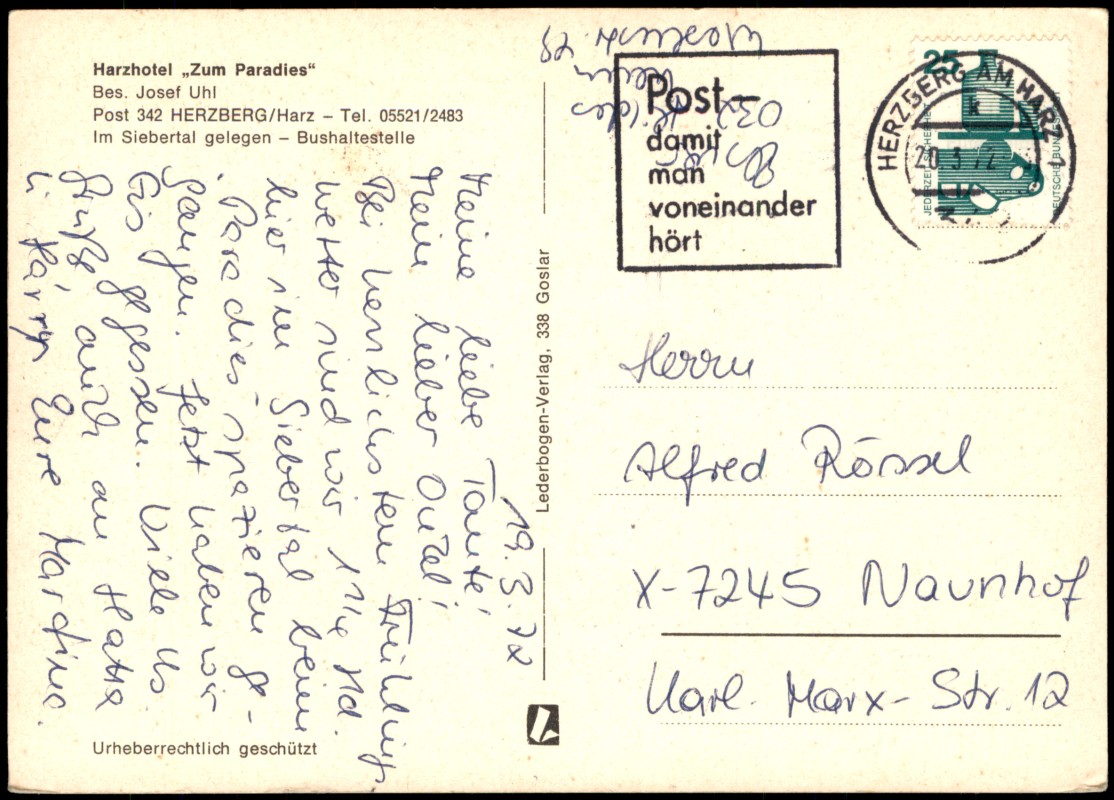 Harzhotel „Zum Paradies“
Bes. Josef Uhl
Post 342 HERZBERG/Harz – Tel. 05521/2483
Im Siebertal gelegen – Bushaltestelle
19.3.72
Meine liebe Tante!
Mein lieber Onkel!
Bei herrlichstem Frühlings
wetter sind wir 1 Std.
hier im Siebertal beim
"Paradies" spazieren ge-
gangen. Jetzt haben wir
Eis gegessen. Viele
Grüße auch an
Eure Martina.
Urheberrechtlich geschützt
Lederbogen-Verlag, 338 Goslar
Post –
damit
man
voneinander
hört
HERZBERG AM HARZ 1
k
20.3.72
25
JEDERZEIT SICHERHEIT
DEUTSCHE BUNDESPOST
Herrn
Alfred Rössel
X-7245 Naunhof
Karl-Marx-Str. 12